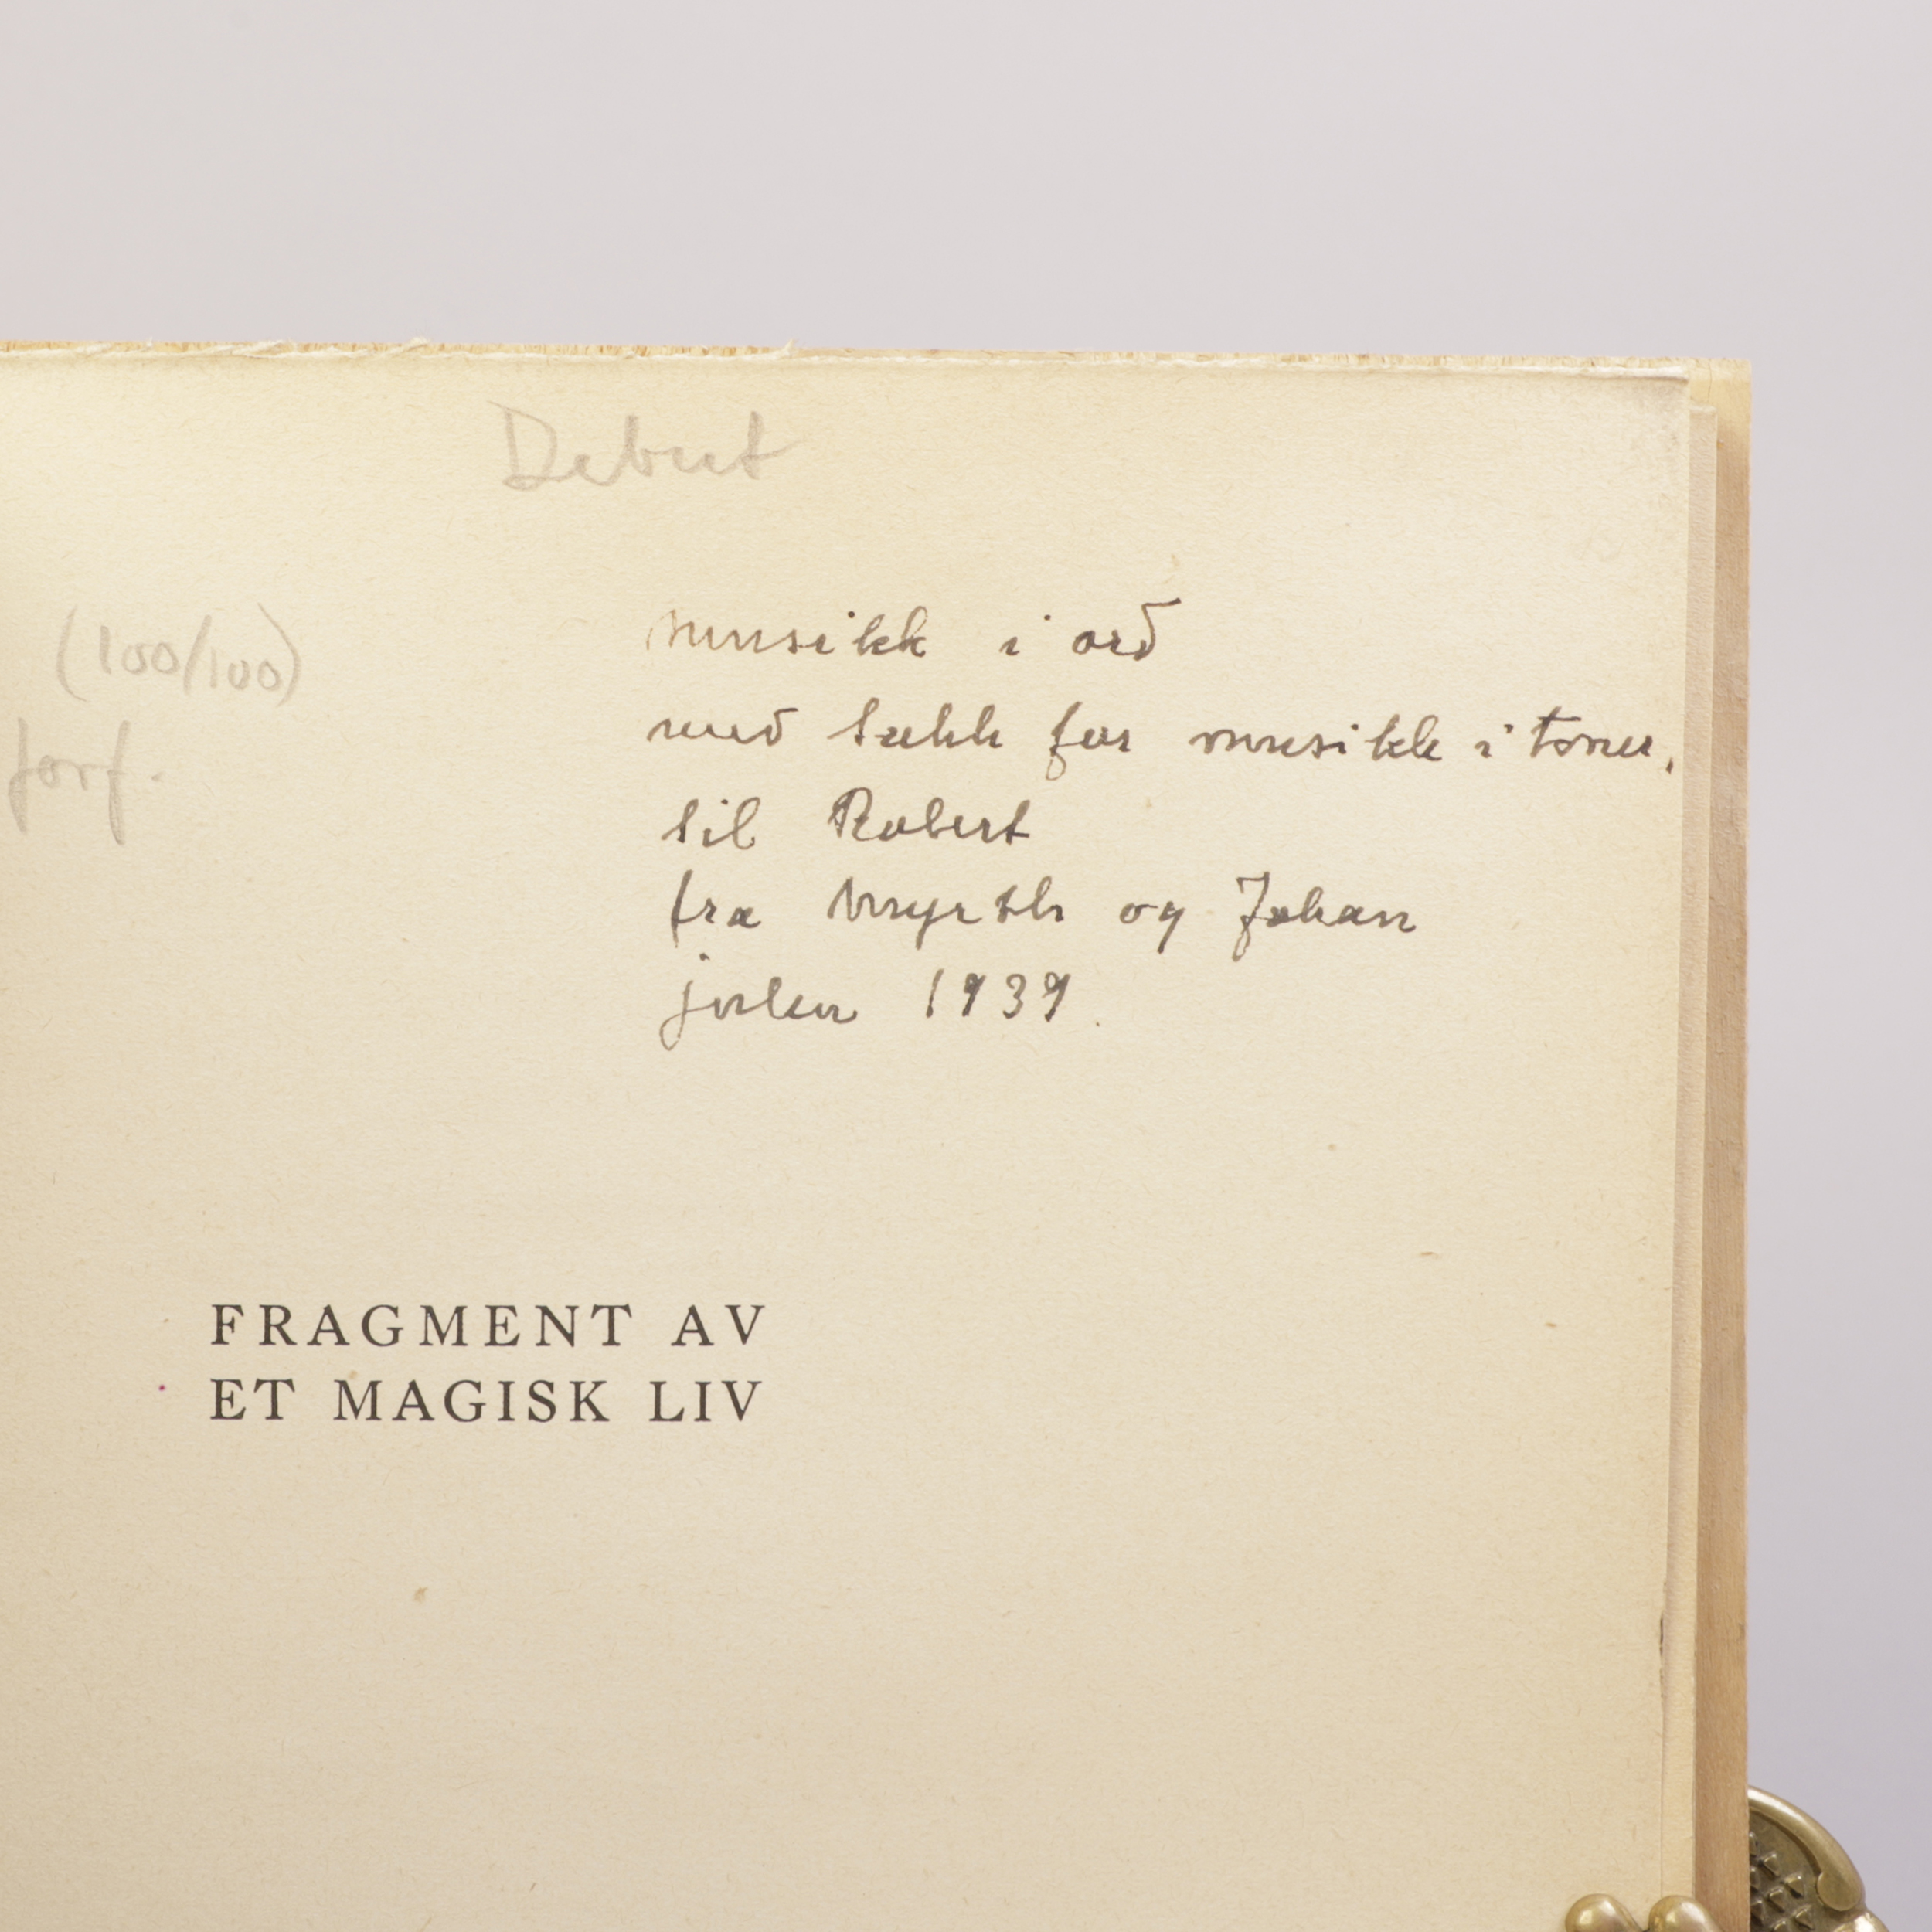 Debut
(100/100)
forf.
musikk i ord
med takk for musikk i toner,
til Robert
fra Myrtle og Johan
julen 1939.
FRAGMENT AV
ET MAGISK LIV